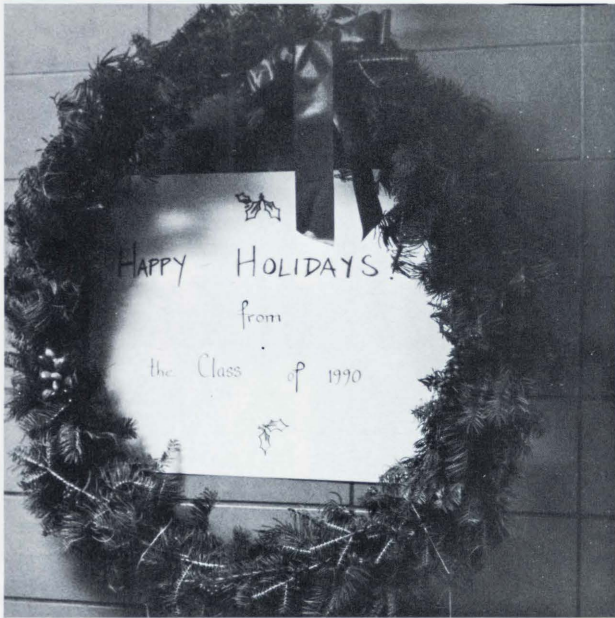 HAPPY HOLIDAYS!
from
the Class of 1990